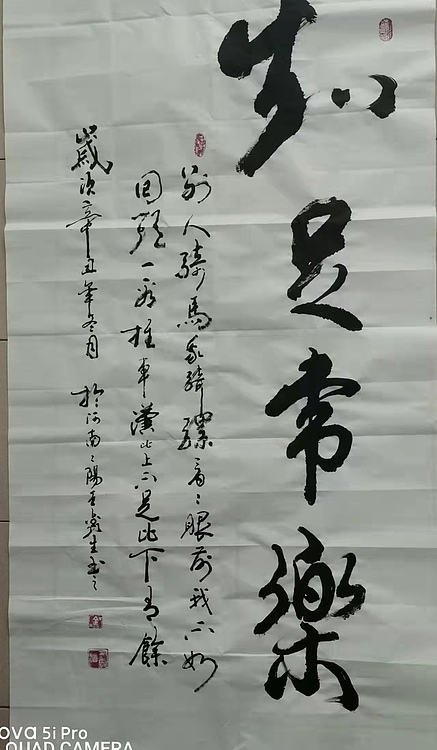 知足常樂
别人騎馬我騎騾看々眼前我不如
回頭一看推車漢比上不足比下有餘
歲次辛丑年冬月於河南々陽
ova 5i Pro
QUAD CAMERA